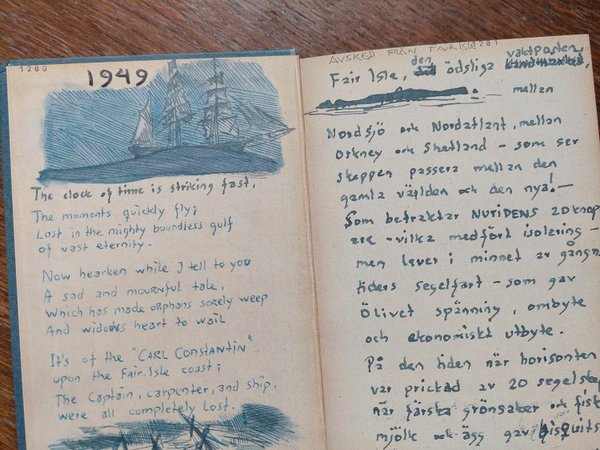 1280
1949
The clock of time is striking fast,
The moments quickly fly;
Lost in the mighty boundless gulf
of vast eternity.
Now hearken while I tell to you
A sad and mournful tale,
Which has made orphans sorely weep
And widows heart to wail
It's of the "CARL CONSTANTIN"
upon the Fair Isle coast;
The Captain, carpenter, and ship,
were all completely lost.
AVSKED FRÅN FAIR ISLE 281
Fair Isle, den ödsliga vaktposten,
mellan
Nordsjö och Nordatlant, mellan
Orkney och Shetland - som ser
skeppen passera mellan den
gamla världen och den nya! -
Som betraktar NUTIDENS 20 knop
are - vilka medfört isolering -
men lever i minnet av gångn
tiders segelfart - som gav
Ölivet spänning, ombyte
och ekonomiskt utbyte.
På den tiden när horisonten
var prickad av 20 segelskep
när färska grönsaker och fisk
mjölk och ägg gav bisquits